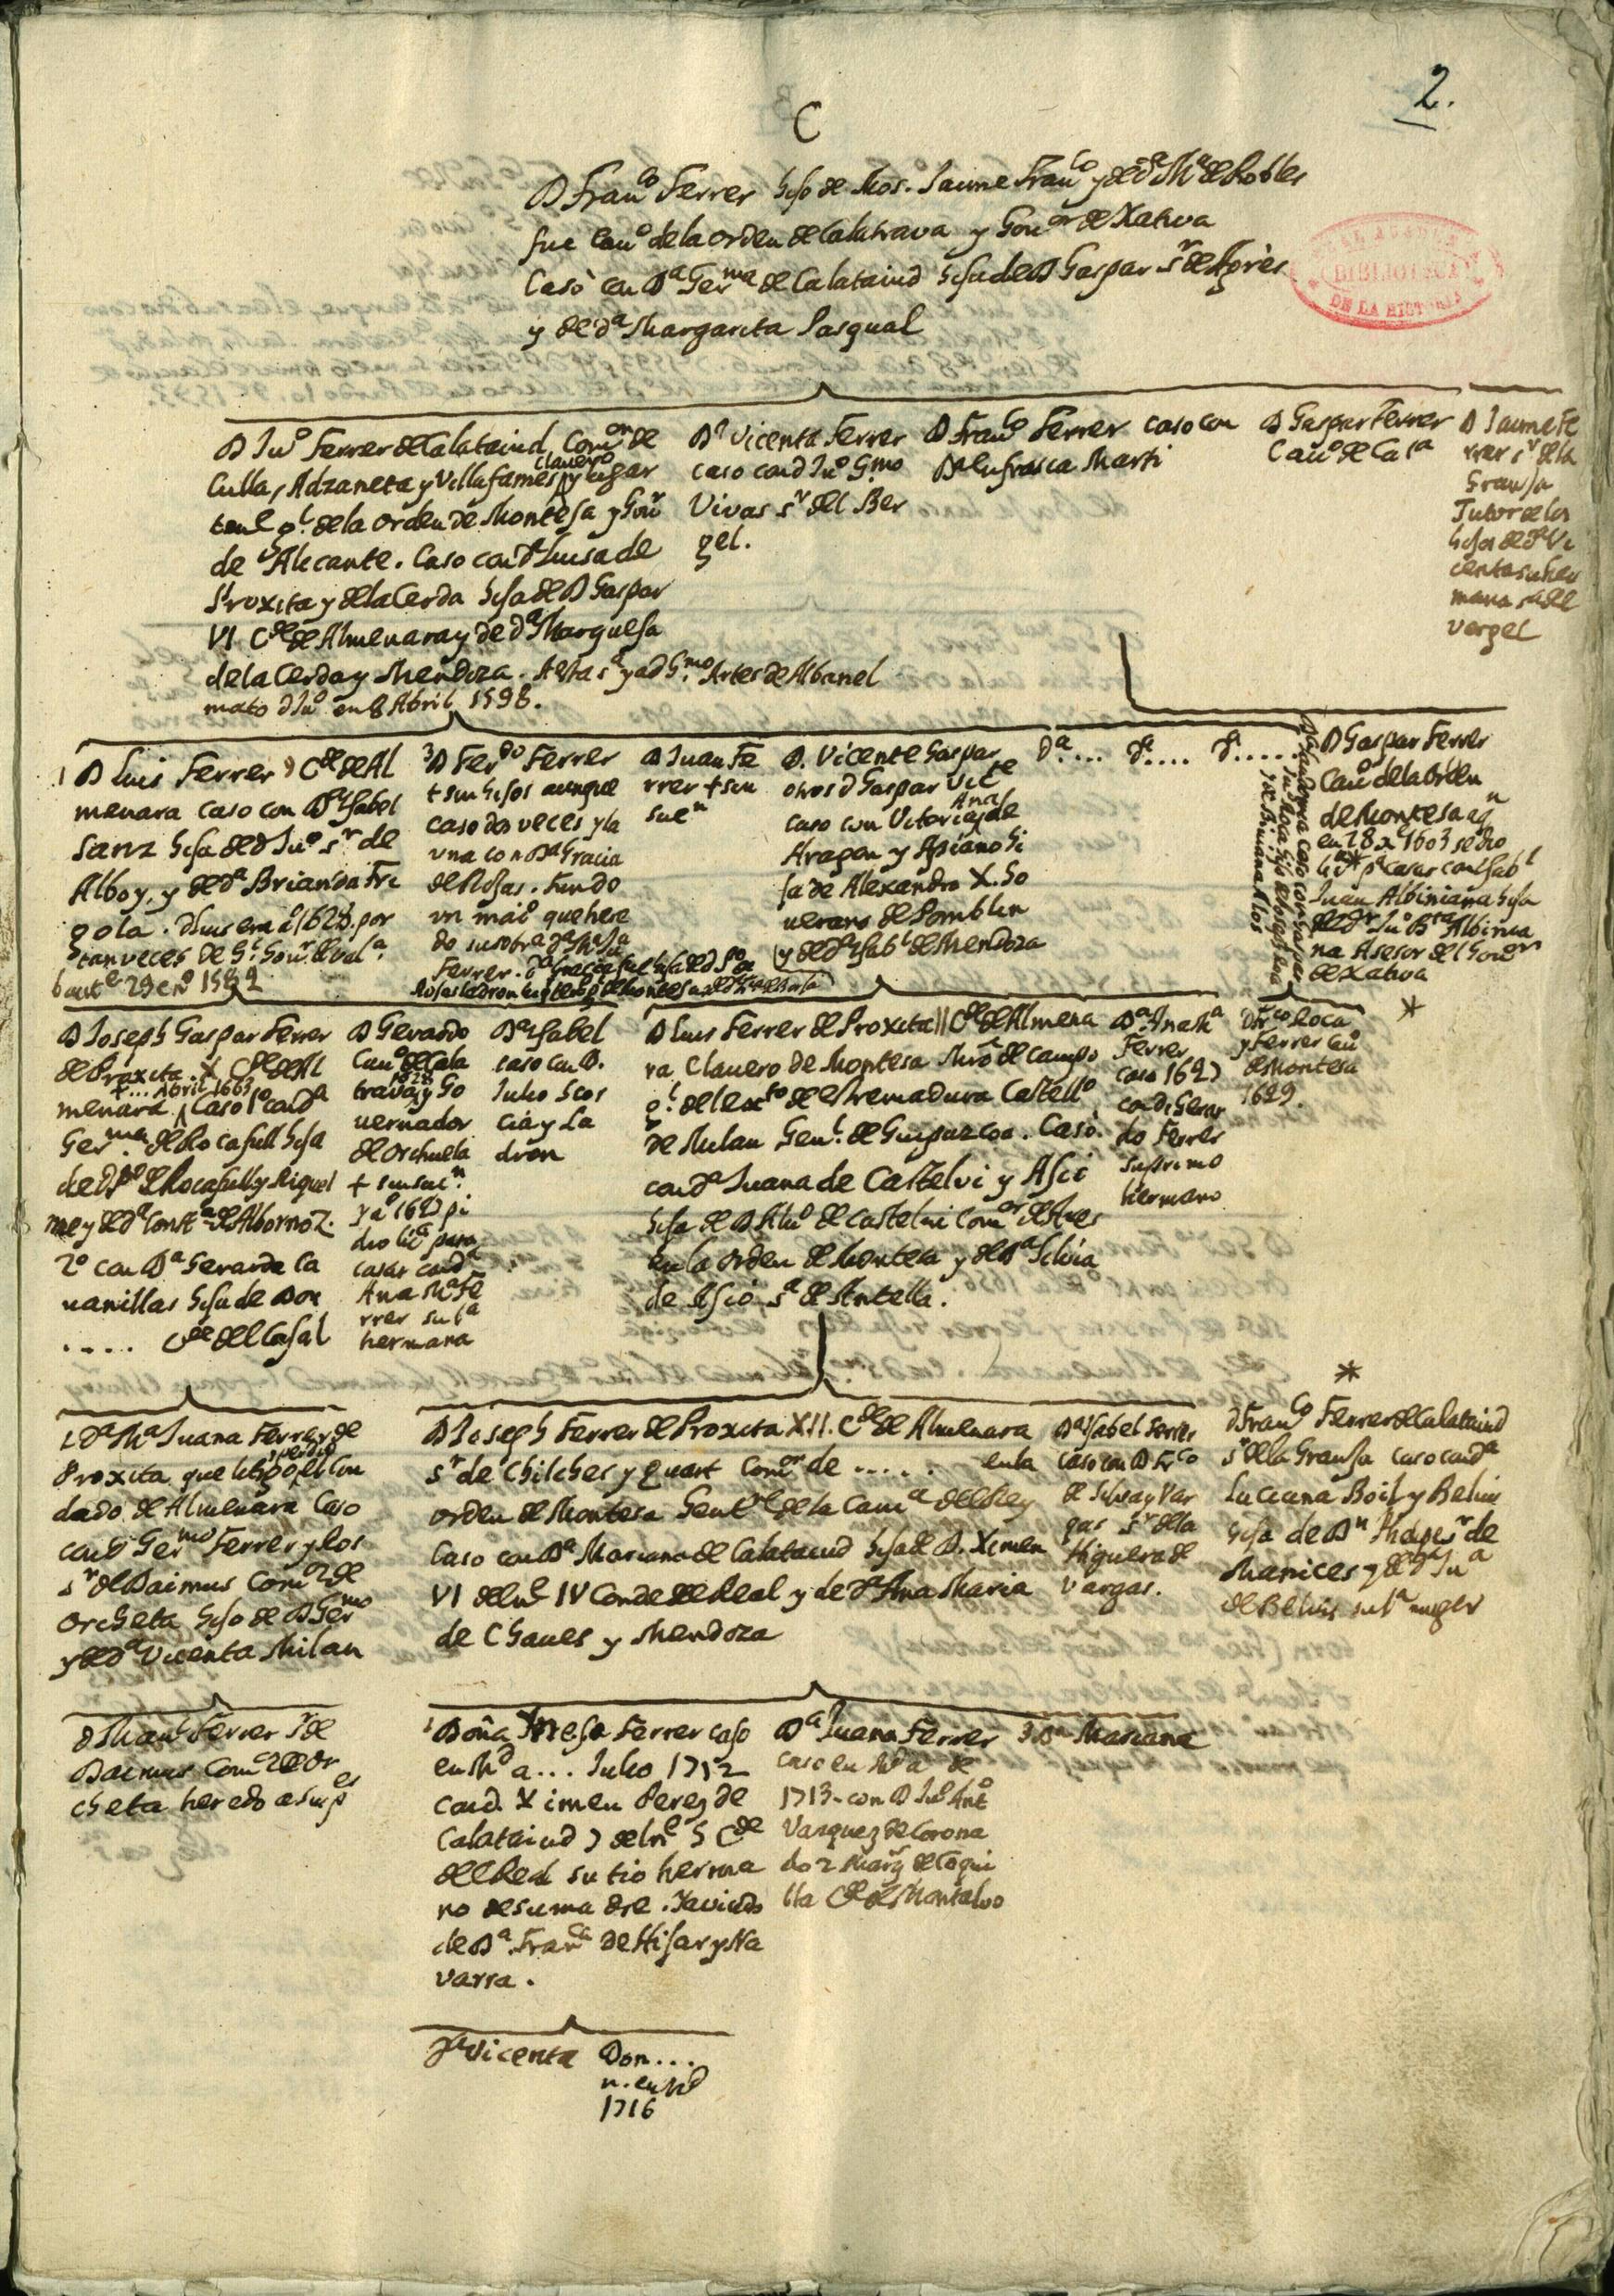 2.
C
D Franco Ferrer hijo de Mos. Jaume Franco y de Da Ma de Robles
fue Cauo de la orden de Calatraua y Gouor de Xatiua
Casò con Da Germa de Calataiud hija de D Gaspar sr de Agrès
y de da Margarita Pasqual
REAL ACADEMIA
BIBLIOTECA
DE LA HISTORIA
D Juo Ferrer de Calataiud Comor de
Culla, Adzaneta y Villafames clauero y lugar
tente gl de la orden de Montesa y Gour
de Alicante. Caso con da Luisa de
Proxita y de la Cerda hija de D Gaspar
VI Cde de Almenara y de da Marquesa
de la Cerda y Mendoza. A esta sa y a d Gmo Artes de Albanel
mato d Juo en 8 Abril 1598.
Da Vicenta Ferrer
caso con d Juo Gmo
Vivas sr del Ber
gel.
D Franco Ferrer caso con
Da Eufrasca Marti
D Gaspar Ferrer
Cauo de Cala
D Jaume Fe
rrer sr de la
Granja
Tutor de los
hijos de da Vi
centa su her
mana sa de
vergel
1 D Luis Ferrer 9 Cde de Al
menara caso con Da Isabel
Sanz hija de d Juo sr de
Alboy, y de da Brianda Fri
gola. D Luis era ao 1628 por
tanveces de Gl Gour de Vala
baute 29 eno 1582
3 D Ferdo Ferrer
+ sin hijos aunque
caso dos veces y la
una con Da Gracia
de Rojas. fundo
un maio que here
do su sobra da Ma Ja
Ferrer.
D Juan Fe
rrer + sin
sucn
D. Vicente Gaspar
otros d Gaspar Victe
caso con Vitoria Ana de
Aragon y Apiano hi
ja de Alexandro X. So
uerano de Pomblin
y de da Isabl de Mendoza
da.... da.... da....
D Gaspar Ferrer
Cauo de la orden
de Montesa aqn
en 28 x 1603 se dio
lica pa casar con Isabl
Juan Albiniana hija
de dr Juo Bta Albinia
na Asesor del Gouor
de Xatiua
*
D Joseph Gaspar Ferrer
de Proxita. X Cde de Al
+... Abril 1663
menara Caso 1o con da
Germa de Rocafull hija
de D Po de Rocafull y Riquel
me y de da Consta de Albornoz.
2o con Da Gerarda Ca
uanillas hija de Don
..... Cde del Casal
D Gerardo
Cauo de Cala
traua 1628 y Go
uernador
de Orihuela
+ sin sucn.
y ao 1627 pi
dio lica para
casar con da
Ana Ma Fe
rrer su la
hermana
Da Isabel
caso con D.
Julio Scor
cia y La
dron
D Luis Ferrer de Proxita 11 Cde de Almena
ra Clauero de Montesa Mro de campo
gl de el exto de estremadura Castello
de Milan Genl de Guipuzcoa. Casò
con da Juana de Castelvi y Asio
hija de D Aluo de Castelui Comor de Ares
en la orden de Montesa y de Da Siluia
de Asio sa de Antella.
Da Ana Ma
Ferrer
caso 1627
con d Gerar
do Ferrer
su primo
hermano
D Frco Roca
y Ferrer Cauo
de Montesa
1629.
*
1 Da Ma Juana Ferrer de
Proxita que litigo y perdio el Con
dado de Almenara Caso
con D Germo Ferrer y los
sr de Daimus Comor de
Orcheta hijo de D Germo
y de da Vicenta Milan
D Joseph Ferrer de Proxita XII. Cde de Almenara
sr de Chilches y Quart Comor de ..... en la
orden de Montesa Gentl de la Cama del Rey
Caso con Da Mariana de Calataiud hija de D. Ximen
VI del ne IV Conde del Real y de da Ana Maria
de Chaues y Mendoza
Da Isabel Ferrer
caso con D Frco
de Silva y Var
gas sr de la
Higuera de
Vargas.
D Franco Ferrer de Calataiud
sr de la Granja caso con da
Luciana Boil y Belvis
hija de Dn Phelipe sr de
Manices y de da Jua
de Belvis su la muger
D Manl Ferrer sr de
Daimus Comor de Or
cheta heredo a sus pes
1 Doña Ines Ferrer caso
en Md a... Julio 1712
con d. Ximen Perez de
Calataiud 7 del ne 5 Cde
del Real su tio herma
no de su madre. Ya viudo
de Da Franca de Hijar y Na
varra.
Da Juana Ferrer
caso en Md a de
1713 con D Juo Anto
Vazquez de Corona
do 2 Marq de Coqui
lla Cde de Montalvo
3 Da Mariana
Da Vicenta
Don...
n. en Md
1716